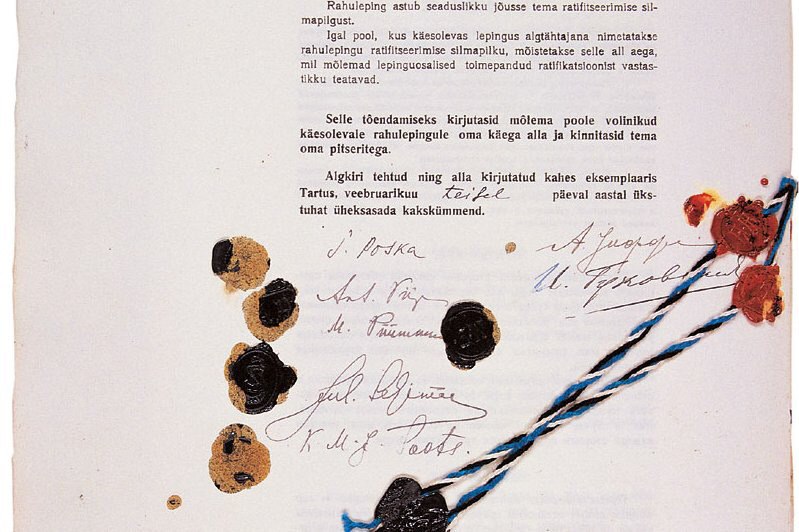 Rahuleping astub seaduslikku jõusse tema ratifitseerimise sil-
mapilgust.
Igal pool, kus käesolevas lepingus algtähtajana nimetatakse
rahulepingu ratifitseerimise silmapilku, mõistetakse selle all aega,
mil mõlemad lepinguosalised toimepandud ratifikatsioonist vastas-
tikku teatavad.
Selle tõendamiseks kirjutasid mõlema poole volinikud
käesolevale rahulepingule oma käega alla ja kinnitasid tema
oma pitseritega.
Algkiri tehtud ning alla kirjutatud kahes eksemplaaris
Tartus, veebruarikuu teisel päeval aastal üks-
tuhat üheksasada kakskümmend.
J. Poska
А. Иоффе
Ant. Piip
M. Puuman
Jul. Seljamaa
K M.-L. Soots.